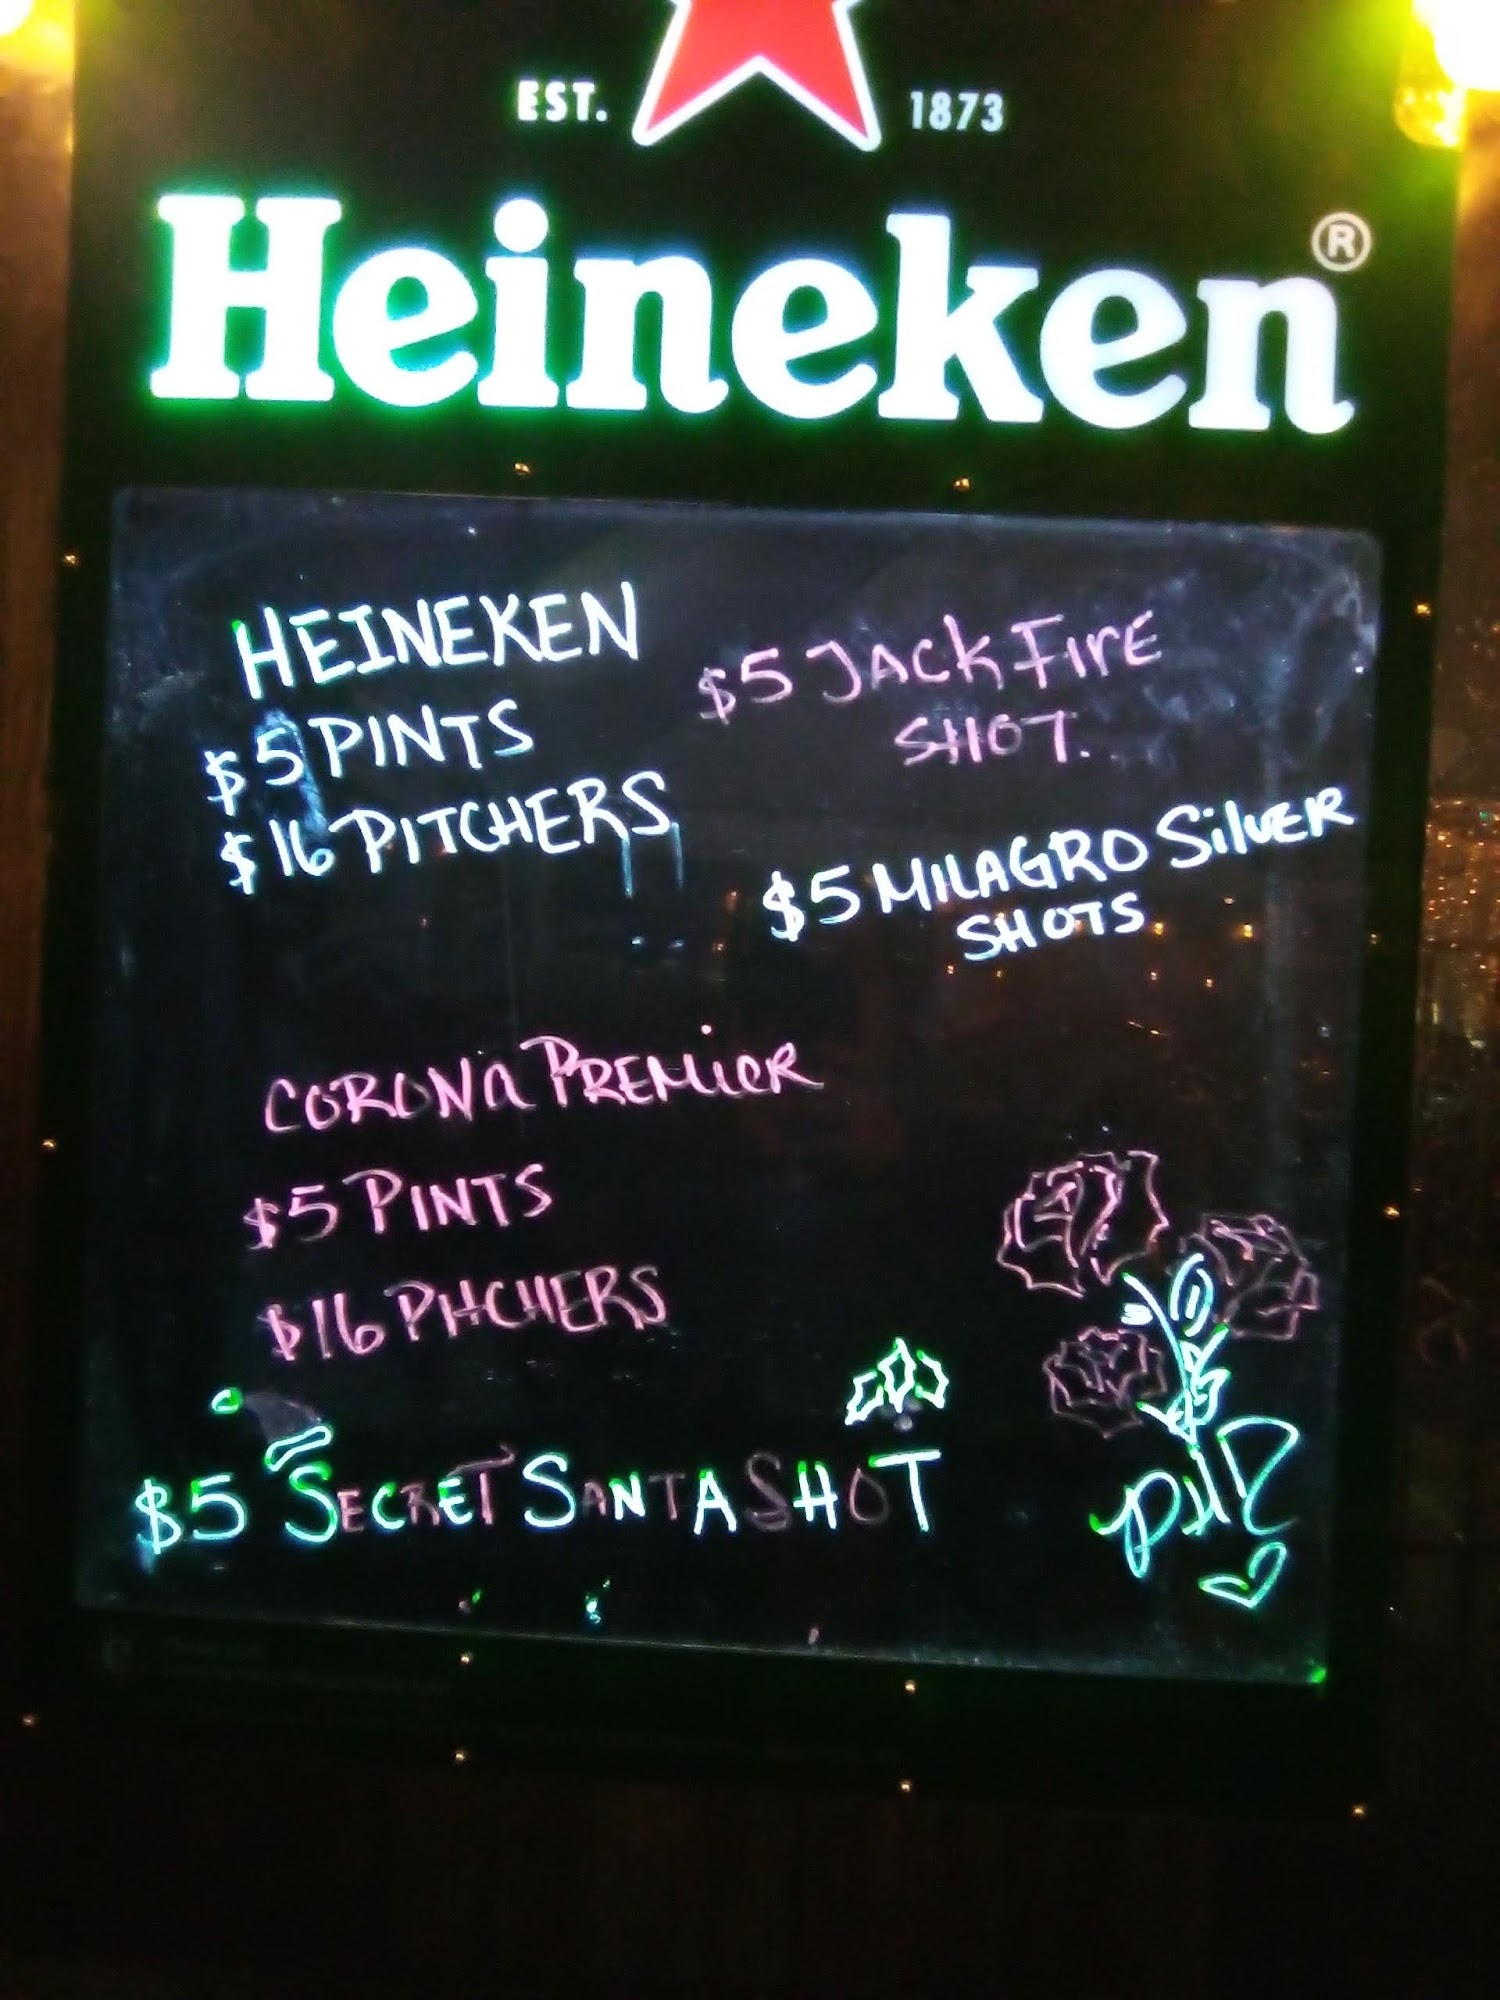 EST. 1873
Heineken®
HEINEKEN
$5 PINTS
$16 PITCHERS
$5 JACK FIrE
SHOT.
$5 MILAGRO SilvER
SHOTS
CORONa PREMiER
$5 PINTS
$16 PitCHERS
$5 SECRET SANTA SHOT